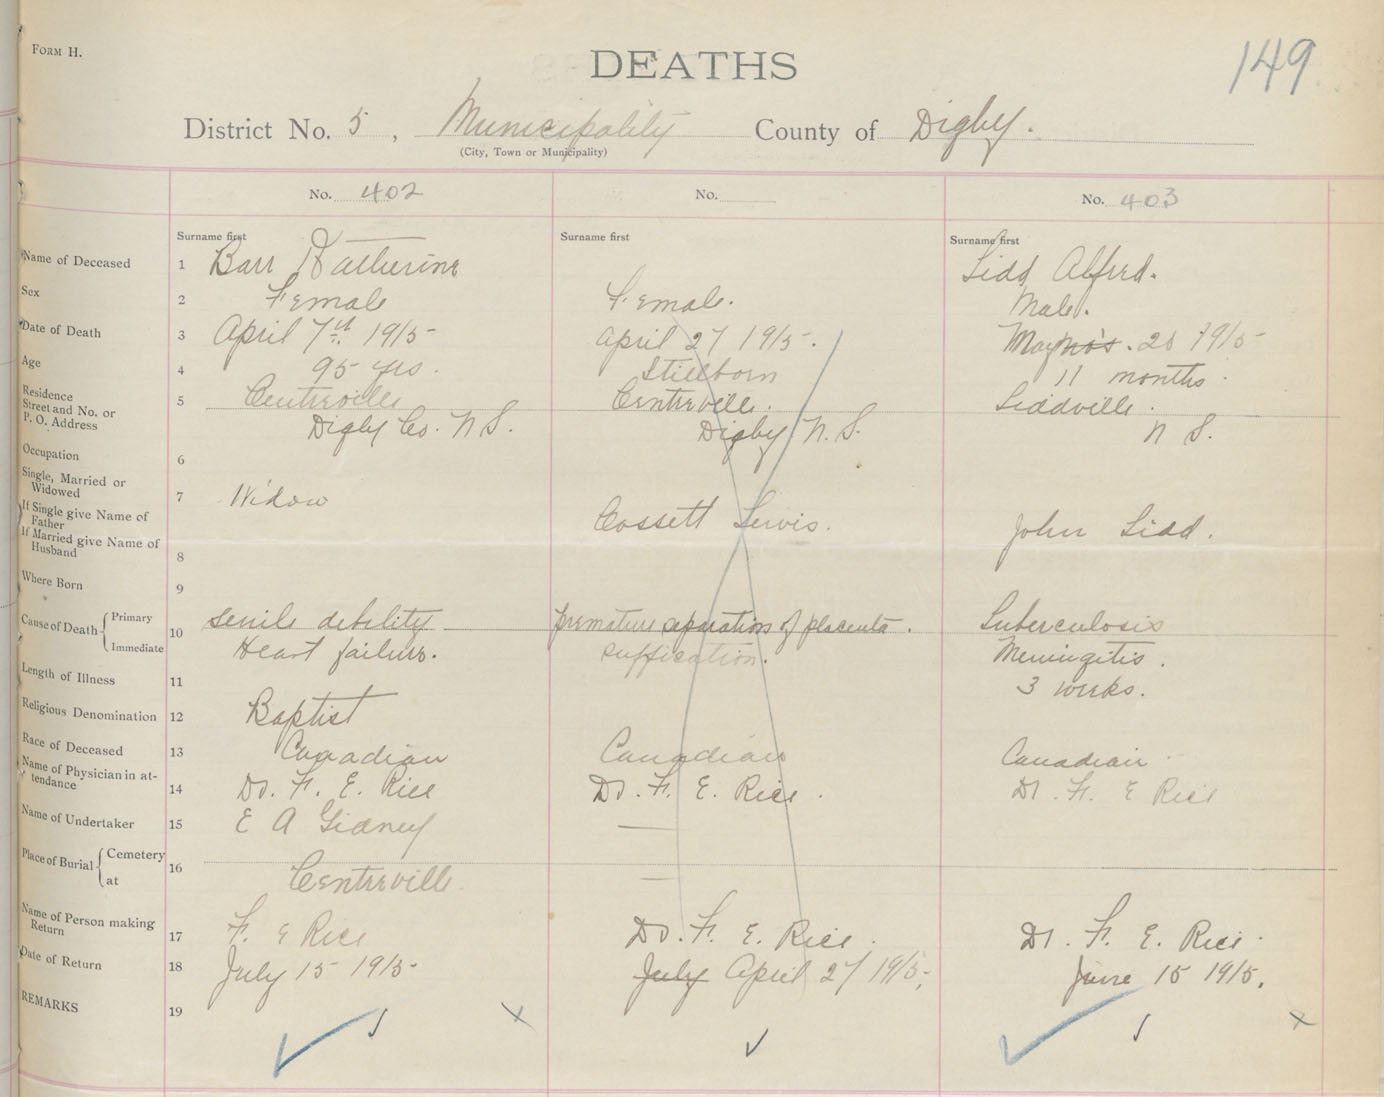 FORM H.
DEATHS
149
District No. 5, Municipality County of Digby.
(City, Town or Municipality)
No. 402
No.
No. 403
Surname first
Surname first
Surname first
Name of Deceased 1 Barr Katherine
Sidd Alfred.
Sex 2 Female
Female.
Male.
Date of Death 3 April 7th 1915
April 27 1915.
May 28 1915
Age 4 95 yrs.
Stillborn
11 months.
Residence
Street and No. or
P. O. Address
5 Centreville
Digby Co. N S.
Centreville.
Digby N. S.
Siddville.
N S.
Occupation 6
Single, Married or
Widowed
7 Widow
If Single give Name of
Father
If Married give Name of
Husband
8
Cossett Lewis.
John Sidd.
Where Born 9
Cause of Death { Primary
Immediate
10 senile debility
Heart failure.
premature separation of placenta.
suffication.
Tuberculosis
Meningitis.
Length of Illness 11
3 weeks.
Religious Denomination 12 Baptist
Race of Deceased 13 Canadian
Canadian
Canadian.
Name of Physician in at-
tendance
14 Dr. F. E. Rice
Dr. F. E. Rice.
Dr. F. E Rice
Name of Undertaker 15 E A Gidney
Place of Burial { Cemetery
at
16 Centreville.
Name of Person making
Return
17 F. E Rice
Dr. F. E. Rice.
Dr. F. E. Rice.
Date of Return 18 July 15 1915
July April 27 1915.
June 15 1915.
REMARKS 19